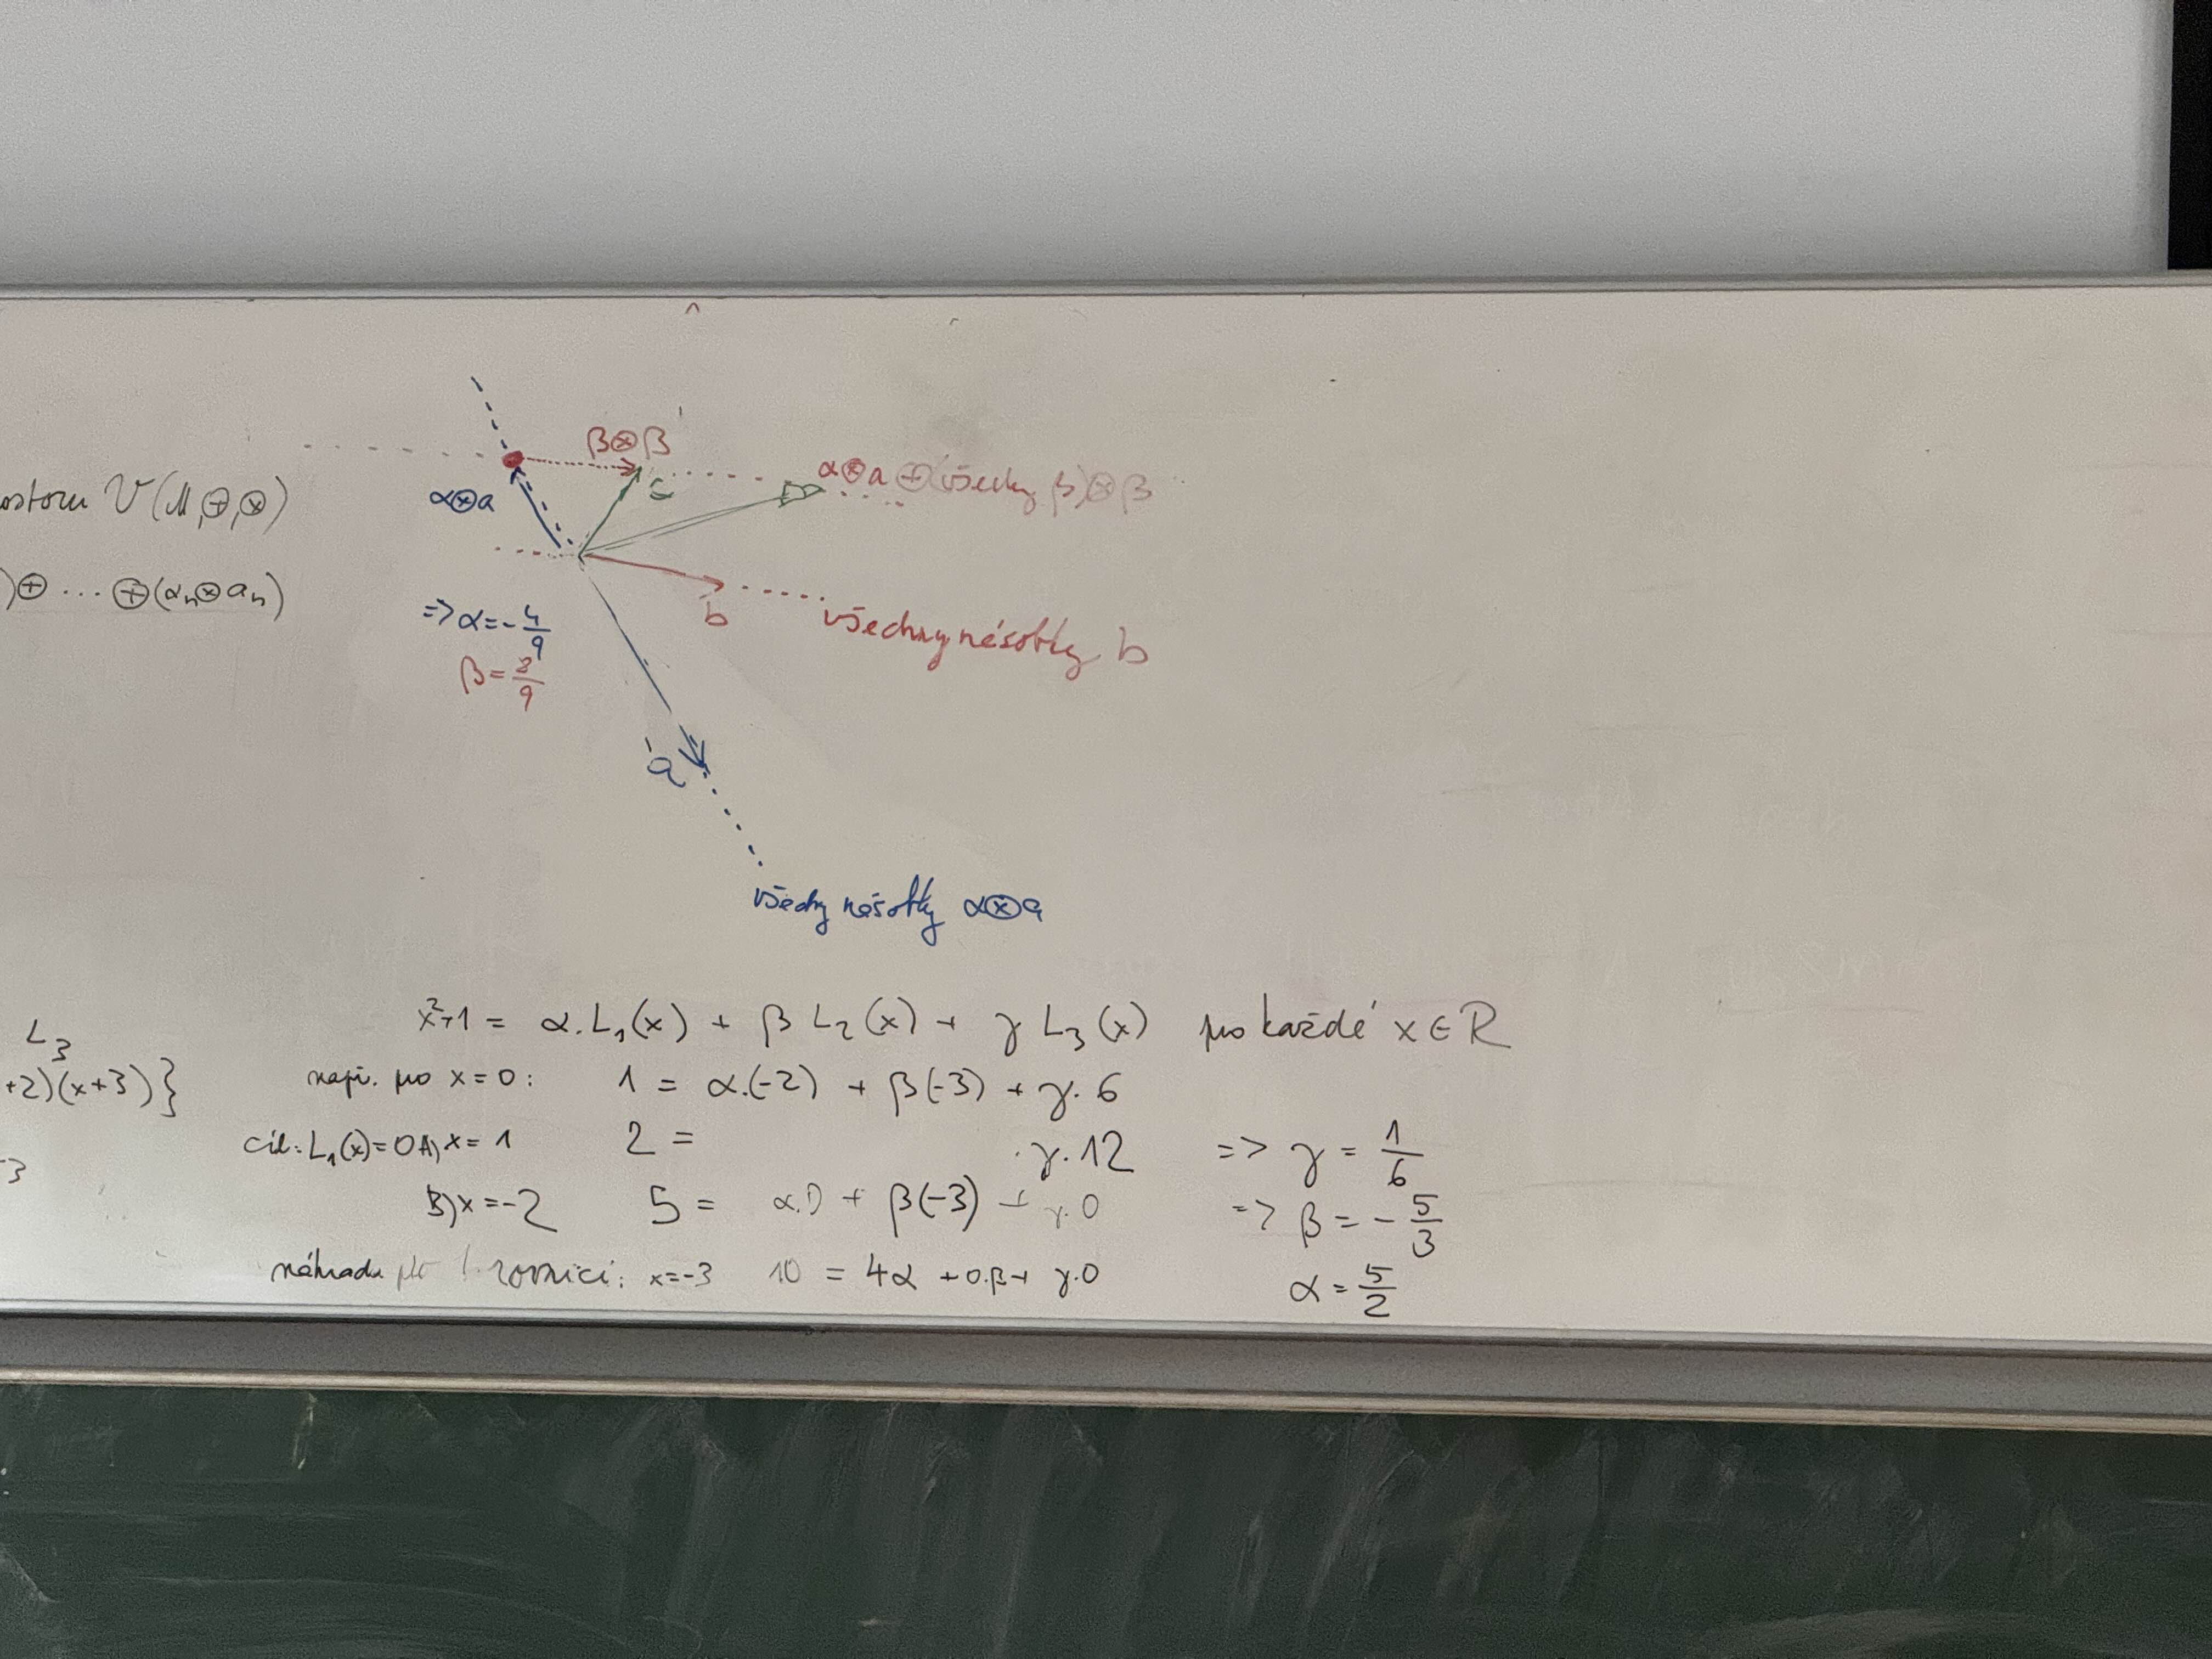 β⊗β
α⊗a
c
α⊗a ⊕ (všechny β)⊗β
V(M,⊕,⊗)
)⊕ ... ⊕(αₙ⊗aₙ)
=> α=-4/9
b
všechny násobky b
a
všechny násobky α⊗a
x²+1 = α.L₁(x) + β L₂(x) + γ L₃(x) pro každé x∈R
L₃
+2)(x+3)}
např. pro x=0: 1 = α.(-2) + β(-3) + γ.6
cíl: L₁(x)=0 A) x=1 2 = γ.12 => γ = 1/6
-3
B) x=-2 5 = α.0 + β(-3) + γ.0 => β = -5/3
náhrada rovnici: x=-3 10 = 4α +0.β+ γ.0 α = 5/2